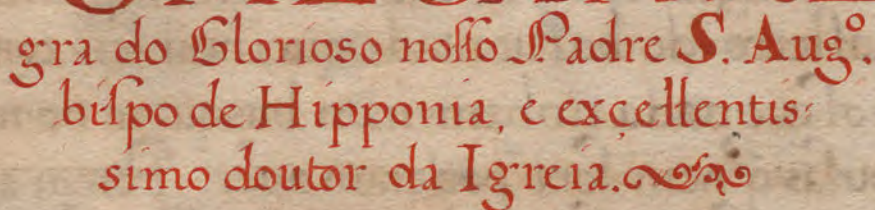 gra do Glorioso nosso Padre S. Augº.
bispo de Hipponia, e exçellentis-
simo doutor da Igreia.